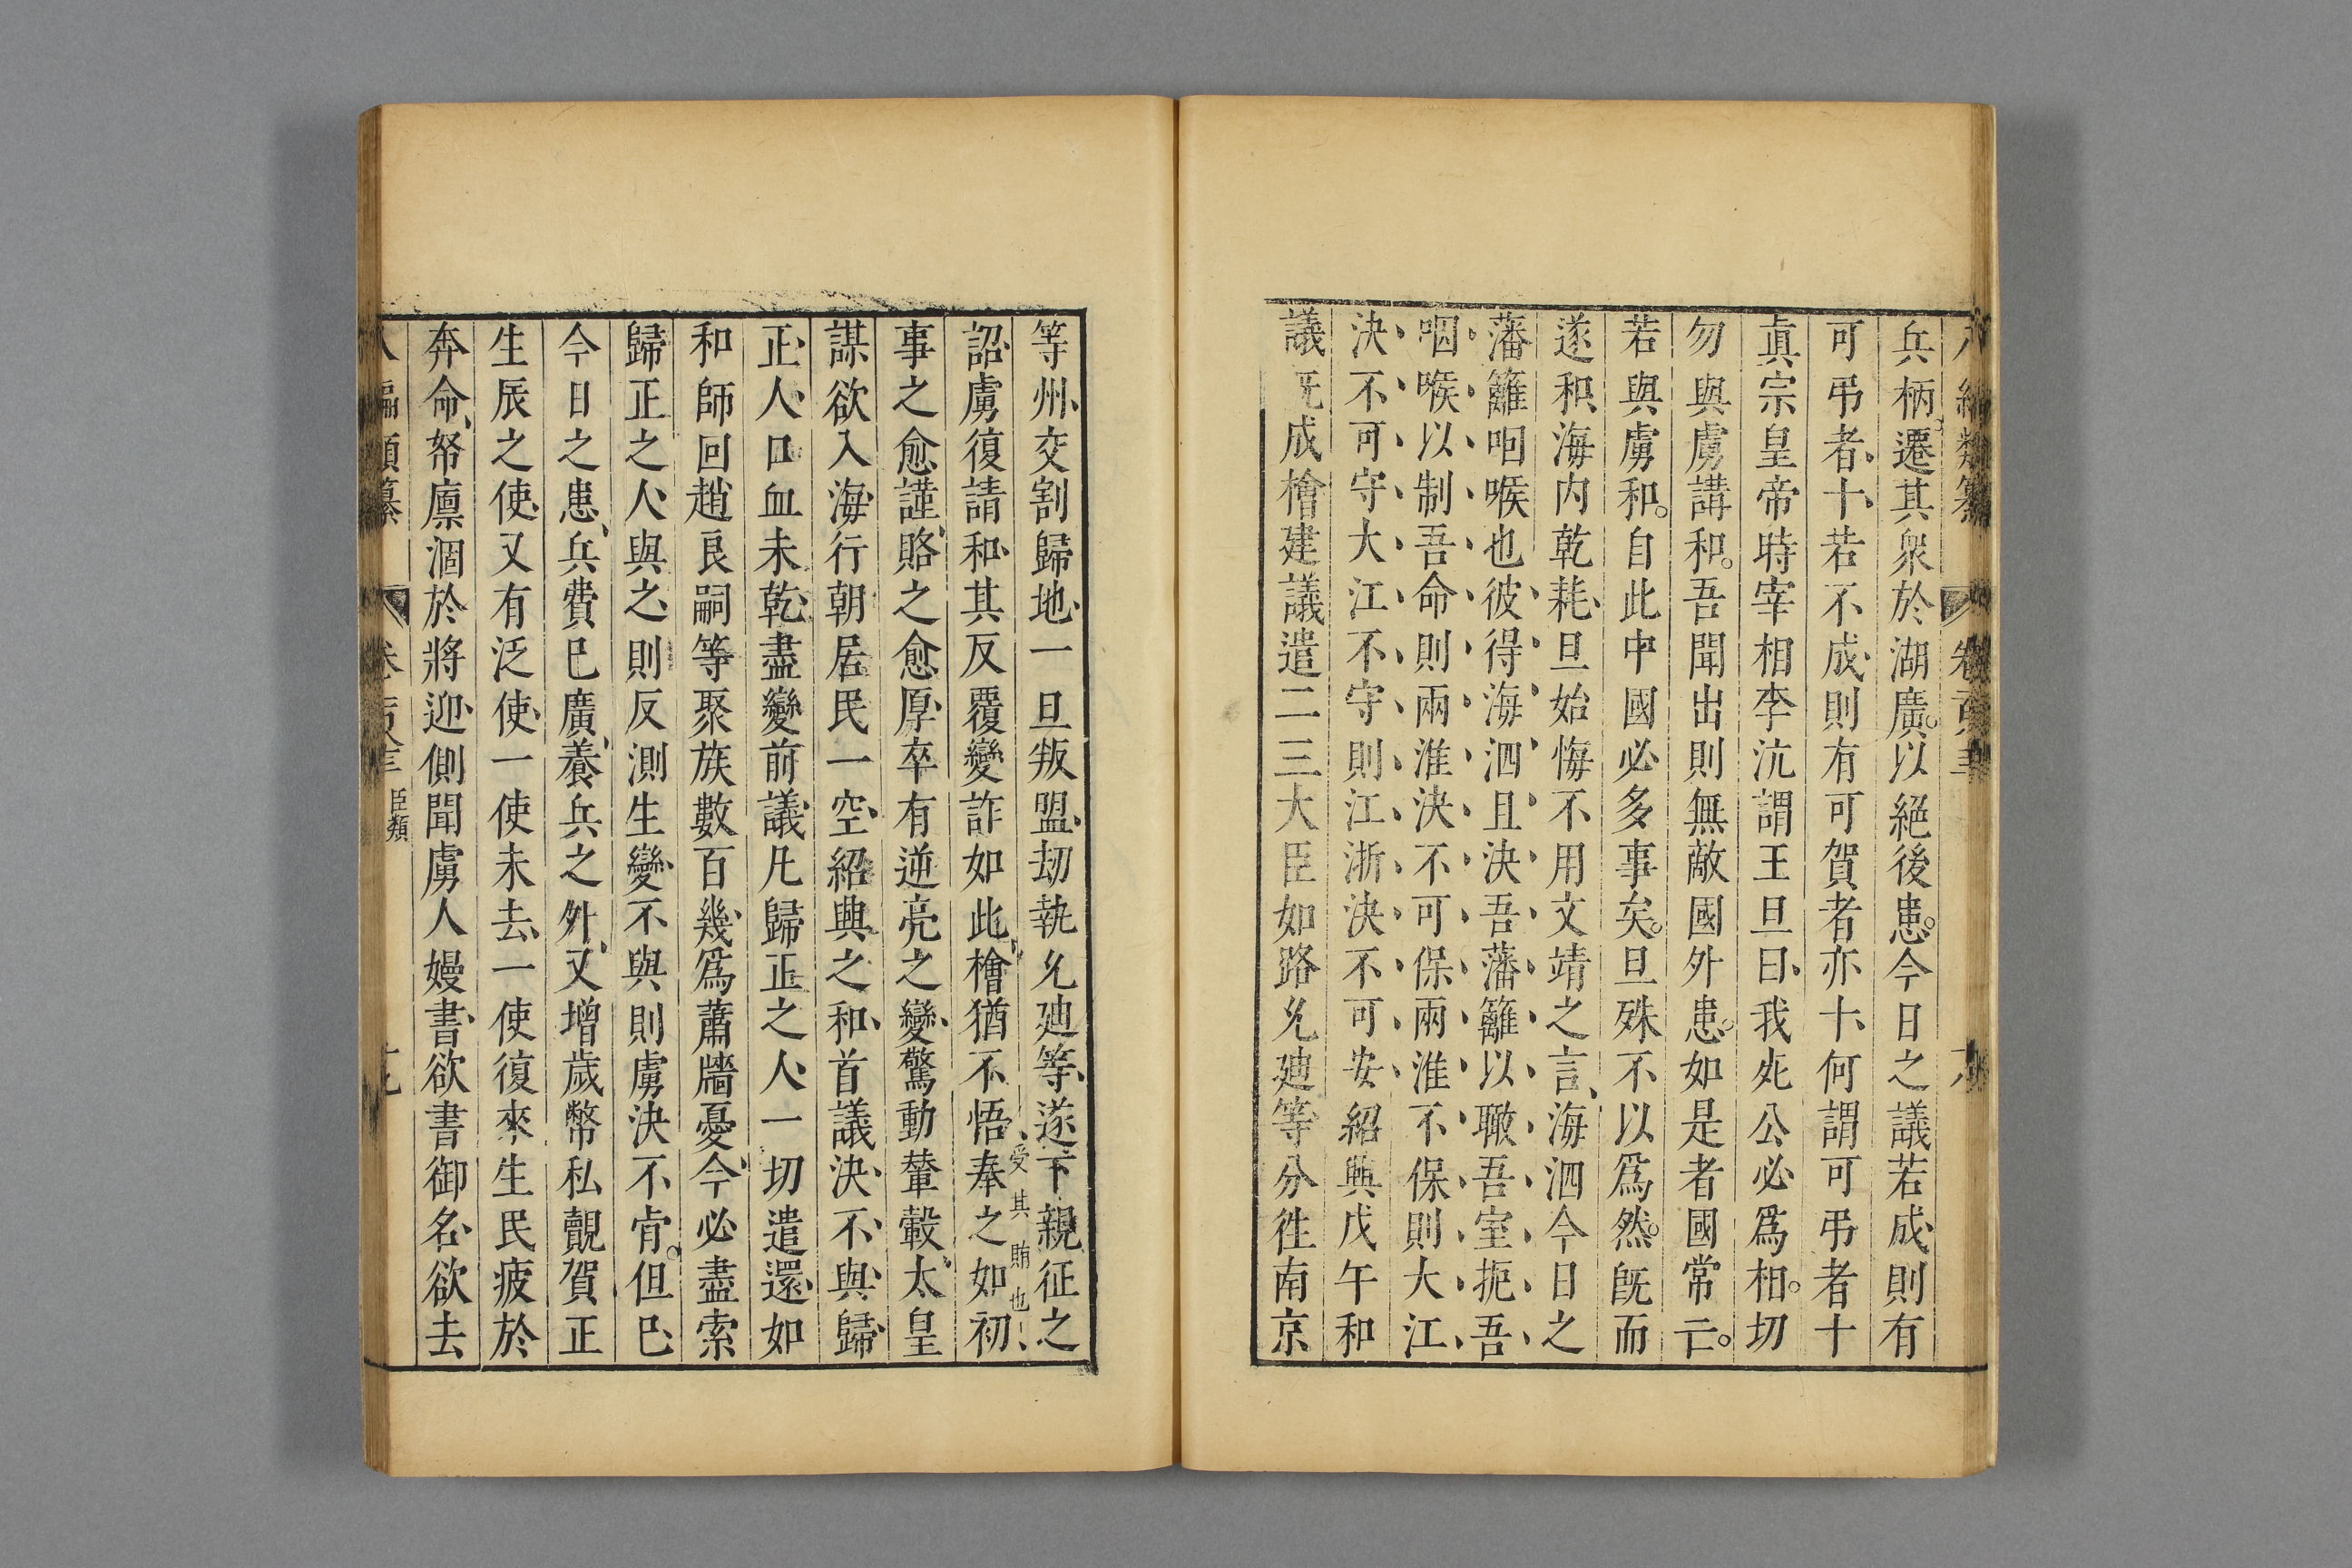 八編類纂 卷
兵柄遷其衆於湖廣以絕後患今日之議若成則有
可弔者十若不成則有可賀者亦十何謂可弔者十
眞宗皇帝時宰相李沆謂王旦曰我死公必爲相切
勿與虜講和吾聞出則無敵國外患如是者國常亡
若與虜和自此中國必多事矣旦殊不以爲然旣而
遂和海内乾耗旦始悔不用文靖之言海泗今日之
藩籬咽喉也彼得海泗且決吾藩籬以瞰吾室扼吾
咽喉以制吾命則兩淮決不可保兩淮不保則大江
決不可守大江不守則江浙決不可安紹興戊午和
議旣成檜建議遣二三大臣如路允廸等分徃南京
等州交割歸地一旦叛盟劫執允廸等遂下親征之
詔虜復請和其反覆變詐如此檜猶不悟奉之如初
受其賄也
事之愈謹賂之愈厚卒有逆亮之變驚動輦轂太皇
謀欲入海行朝居民一空紹興之和首議決不與歸
正人口血未乾盡變前議凡歸正之人一切遣還如
和師回趙良嗣等聚族數百幾爲蕭牆憂今必盡索
歸正之人與之則反測生變不與則虜決不肯但已
今日之患兵費已廣養兵之外又增歲幣私覿賀正
生辰之使又有泛使一使未去一使復來生民疲於
奔命帑廩涸於將迎側聞虜人嫚書欲書御名欲去
八編類纂 卷 臣類